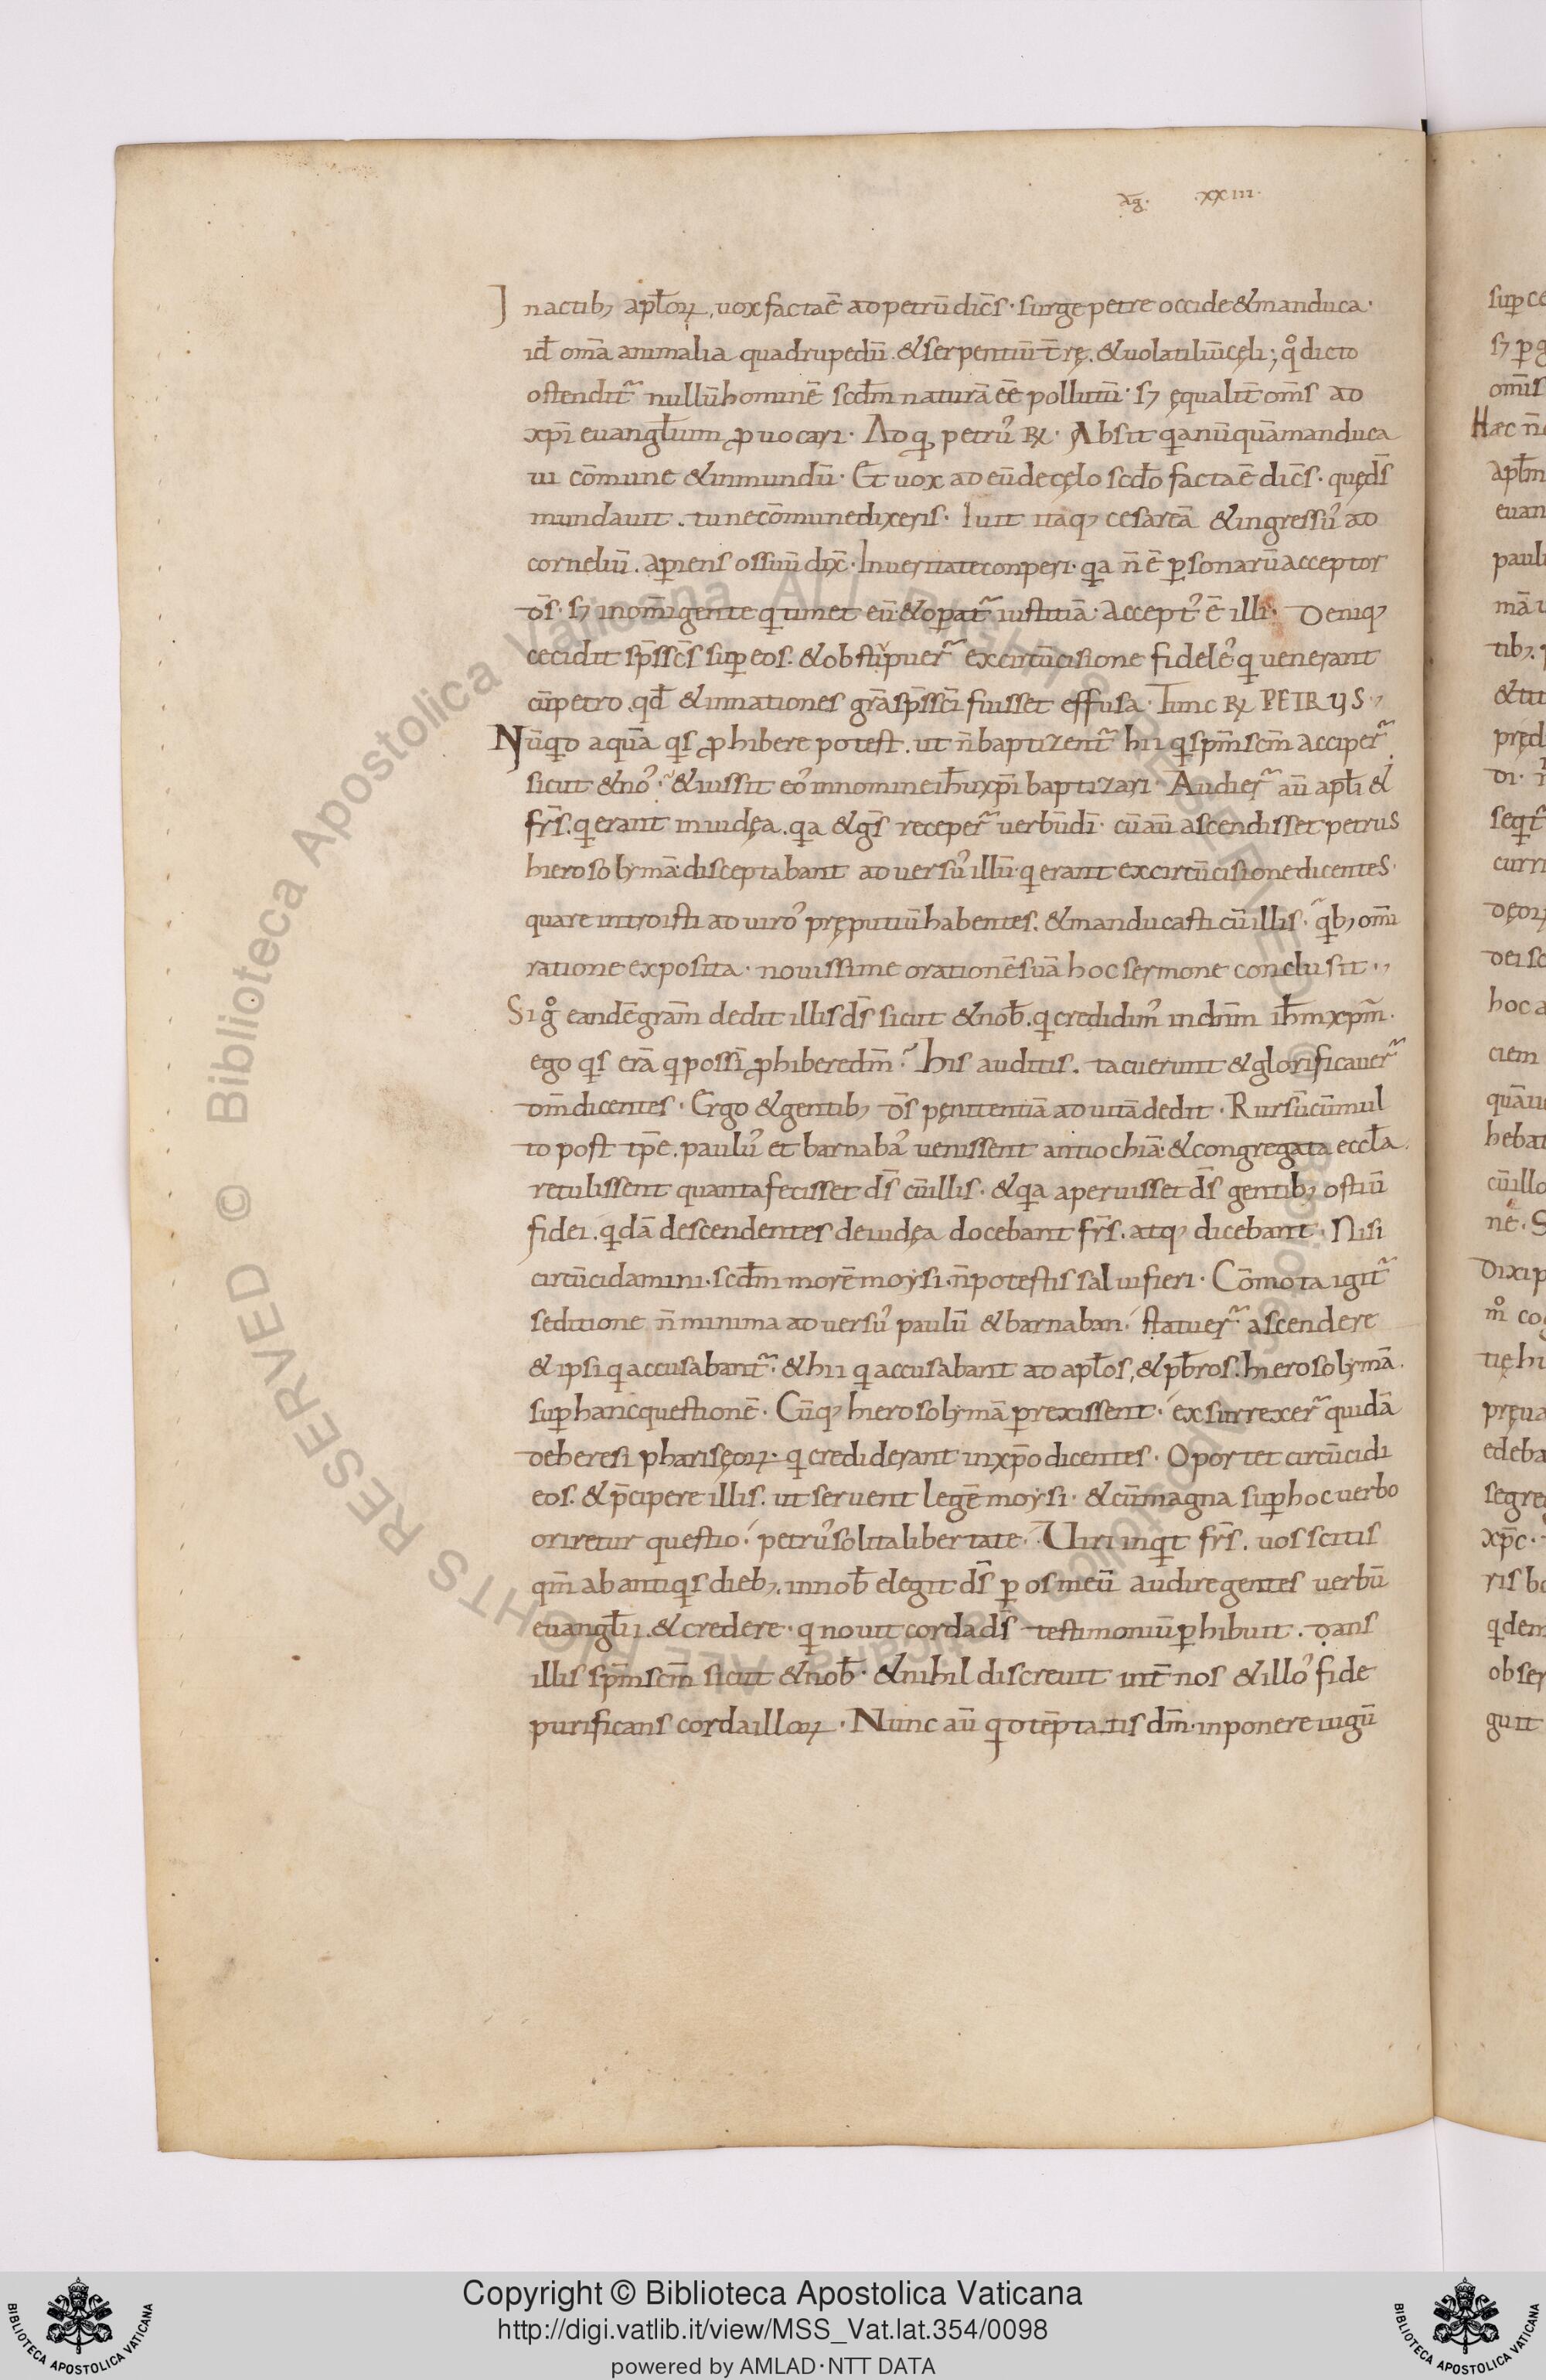 āg. .xxiii.
In actib; apłoꝝ, uox facta ē ad petrū dicēs. surge petre occide & manduca.
id̄ om̄a animalia quadrupedū. & serpentiū t̄rę. & uolatiliū cęli; qͦ dicto
ostendit᷑ nullū hominē scdm̄ naturā eē pollutū. s; ęqualit̄ om̄s ad
xp̄i euangłium ꝓuocari. Ad q̨ petrus᾽ R̷. Absit q̨a nūquā manduca
ui cōmune & inmundū. Et uox ad eū de cęlo scdō facta ē dicēs. quę ds̄
mundauit. tu ne cōmune dixeris. Iuit itaq; cesareā & ingressu᾽ ad
corneliū. aperiens os suū dix̄. In ueritate conperi. qa n̄ ē ꝑsonarū acceptor
ds̄. s; in om̄i gente q timet eū & oꝑat᷑ iustitiā. accept᾽ ē illi. Deniq;
cecidit sp̄s sc̄s suꝑ eos. & obstipuer᷑ ex circūcisione fidele᾽ q uenerant
cū petro. qd̄ & in nationes grā sp̄s sc̄i fuisset effusa. Tunc R̷ PETRUS.,
Nūqd aquā qs ꝓhibere potest. ut n̄ baptizent᷑ hii q sp̄m scm̄ acciper᷑
sicut & no᾽. & iussit eo᾽ in nomine ih̄u xp̄i baptizari. Audier᷑ aū apłi &
fr̄s. q erant in iudęa. qa & gs̄ receper᷑ uerbū dī. cū aū ascendisset petrus
hierosolymā disceptabant aduersu᾽ illū q erant ex circūcisione dicentes.
quare introisti ad uiro᾽ pręputiū habentes. & manducasti cū illis. qb; om̄i
ratione exposita. nouissime orationē suā hoc sermone conclusit.,
Si gͦ eandē gram̄ dedit illis ds̄ sicut & nob̄. q credidim᾽ in dnm̄ ih̄m xp̄m.
ego qs erā q possī ꝓhibere dm̄. his auditis. tacuerunt & glorificauer᷑
dm̄ dicentes. Ergo & gentib; ds̄ pęnitentiā ad uitā dedit. Rursū cū mul
to post tp̄e. paulu᾽ et barnaba᾽ uenissent antiochiā. & congregata eccła.
retulissent quanta fecisset ds̄ cū illis. & qa aperuisset ds̄ gentib; ostiū
fidei. qdā descendentes de iudęa docebant fr̄s. atq; dicebant. Nisi
circūcidamini. scdm̄ morē moysi. n̄ potestis salui fieri. Cōmota igit᷑
seditione n̄ minima aduersu᾽ paulū & barnaban. statuer᷑ ascendere
& ipsi q accusabant᷑. & hii q accusabant ad apłos, & pb̄ros. hierosolymā.
suꝑ hanc questionē. Cūq; hierosolymā ꝑrexissent. exsurrexer᷑ quidā
de heresi pharisęoꝝ. q crediderant in xp̄o dicentes. Oportet circūcidi
eos. & p̄cipere illis. ut seruent legē moysi. & cū magna suꝑ hoc uerbo
oriretur questio. petru᾽ solita libertate. Uiri inqt fr̄s. uos scitis
qm̄ ab antiqs dieb;. in nob̄ elegit ds̄ ꝑ os meū audire gentes uerbū
euangłii. & credere. q nouit corda ds̄ testimoniū ꝑhibuit. dans
illis sp̄m scm̄ sicut & nob̄. & nihil discreuit int̄ nos & illo᾽ fide
purificans corda illoꝝ. Nunc aū qd tēptatis dm̄. inponere iugū
Copyright © Biblioteca Apostolica Vaticana
http://digi.vatlib.it/view/MSS_Vat.lat.354/0098
powered by AMLAD·NTT DATA